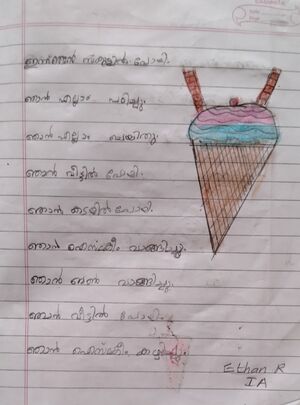 ഇന്ന് ഞാൻ സ്കൂളിൽ പോയി.
ഞാൻ എല്ലാം പഠിച്ചു.
ഞാൻ എല്ലാം ചെയ്തു.
ഞാൻ വീട്ടിൽ പോയി.
ഞാൻ കടയിൽ പോയി.
ഞാൻ ഐസ്ക്രീം വാങ്ങിച്ചു.
ഞാൻ ബൺ വാങ്ങിച്ചു.
ഞാൻ വീട്ടിൽ പോയി.
ഞാൻ ഐസ്ക്രീം കഴിച്ചു.
Ethan R
IA